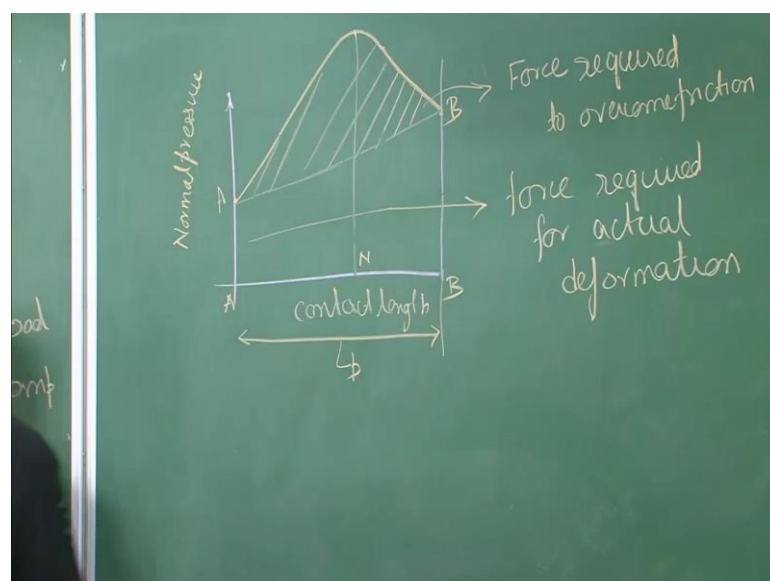 Normal pressure
A
B
Force required
to overcome friction
force required
for actual
deformation
N
A
contact length
B
Lp
oad
omp